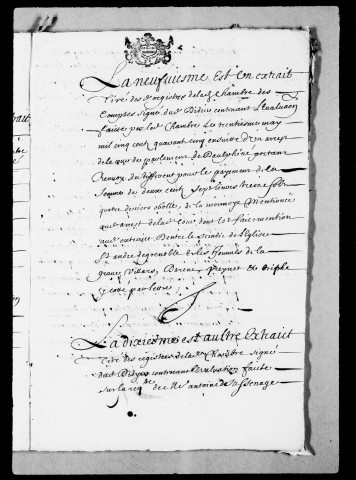 La neufviesme est un extraict
tiré des registres de la Chambre des
Comptes signé dud Bidius contenant l'évaluaõn
faicte par la d Chambre le trentiesme may
mil cinq cent quarante cinq ensuitte d'un arrest
de la cour de parlement de Dauphiné portant
du different pour le payement de la
somme de deux cent sept livres treize solz
quatre deniers obolle, de la monnoye mentionée
aud arrest de la d Cour dont est faict mention
aud extraict entre le scindic de l'Eglise
St André de grenoble et les hommes de la
grave, Villars,
et cotté par lettre
La dixiesme est aultre Extraict
tiré des registres de la d Chambre signé
dud contenant l'Evaluation faicte
sur la req de Me Antoine de Sassenage